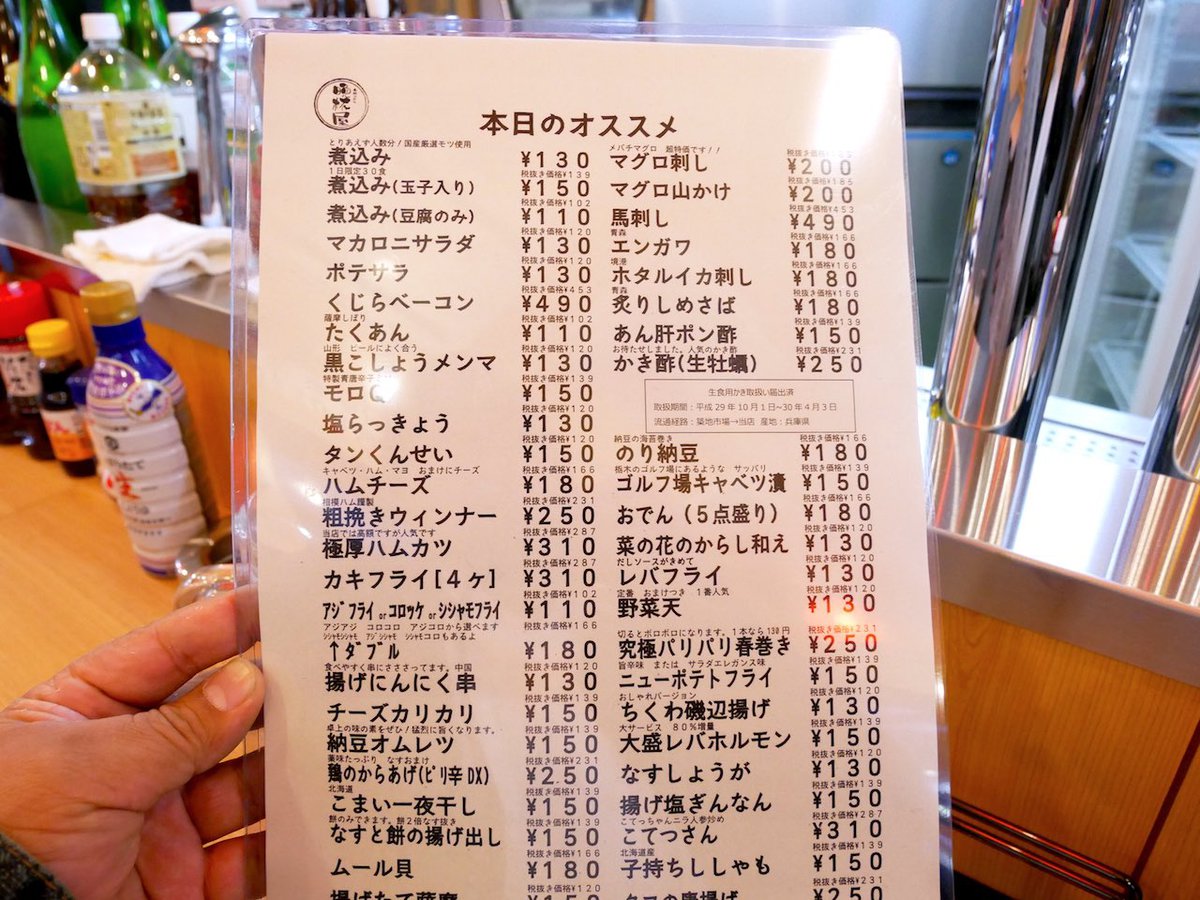 本日のオススメ
とりあえず人数分!国産厳選モツ使用
煮込み ¥130
1日限定30食
税抜き価格¥139
煮込み(玉子入り) ¥150
税抜き価格¥102
煮込み(豆腐のみ) ¥110
税抜き価格¥120
マカロニサラダ ¥130
税抜き価格¥120
ポテサラ ¥130
税抜き価格¥453
くじらベーコン ¥490
薩摩しぼり
税抜き価格¥102
たくあん ¥110
山形 ビールによく合う
税抜き価格¥120
黒こしょうメンマ ¥130
税抜き価格¥139
モロQ ¥150
税抜き価格¥120
塩らっきょう ¥130
税抜き価格¥139
タンくんせい ¥150
キャベツ・ハム・マヨ おまけにチーズ
税抜き価格¥166
ハムチーズ ¥180
相模ハム謹製
税抜き価格¥231
粗挽きウィンナー ¥250
当店では高額ですが人気です
税抜き価格¥287
極厚ハムカツ ¥310
税抜き価格¥287
カキフライ[4ヶ] ¥310
税抜き価格¥102
アジフライorコロッケorシシャモフライ ¥110
アジアジ コロコロ アジコロから選べます
税抜き価格¥166
シシャモシシャモ アジシシャモ シシャモコロもあるよ
↑ダブル ¥180
食べやすく串にささってます。中国
税抜き価格¥120
揚げにんにく串 ¥130
税抜き価格¥139
チーズカリカリ ¥150
卓上の味の素をぜひ!猛烈に旨くなります。
税抜き価格¥139
納豆オムレツ ¥150
薬味たっぷり なすおまけ
税抜き価格¥231
鶏のからあげ(ピリ辛DX) ¥250
北海道
税抜き価格¥139
こまい一夜干し ¥150
餅のみできます。餅2倍なす抜き
税抜き価格¥139
なすと餅の揚げ出し ¥150
税抜き価格¥166
ムール貝 ¥180
税抜き価格¥120
メバチマグロ 超特価です!!
マグロ刺し ¥200
税抜き価格¥185
マグロ山かけ ¥200
税抜き価格¥453
馬刺し ¥490
青森
税抜き価格¥166
エンガワ ¥180
境港
税抜き価格¥166
ホタルイカ刺し ¥180
青森
税抜き価格¥166
炙りしめさば ¥180
税抜き価格¥139
あん肝ポン酢 ¥150
お待たせしました。人気のかき酢
税抜き価格¥231
かき酢(生牡蠣) ¥250
生食用かき取扱い届出済
取扱期間:平成29年10月1日~30年4月3日
流通経路:築地市場→当店 産地:兵庫県
納豆の海苔巻き
税抜き価格¥166
のり納豆 ¥180
栃木のゴルフ場にあるような サッパリ
税抜き価格¥139
ゴルフ場キャベツ漬 ¥150
税抜き価格¥166
おでん(5点盛り) ¥180
税抜き価格¥120
菜の花のからし和え ¥130
だしソースがきめて
税抜き価格¥120
レバフライ ¥130
定番 おまけつき 1番人気
税抜き価格¥120
野菜天 ¥130
切るとボロボロになります。1本なら130円
税抜き価格¥231
究極パリパリ春巻き ¥250
旨辛味 または サラダエレガンス味
税抜き価格¥139
ニューポテトフライ ¥150
おしゃれバージョン
ちくわ磯辺揚げ ¥130
大サービス 80%増量
税抜き価格¥139
大盛レバホルモン ¥150
税抜き価格¥120
なすしょうが ¥130
税抜き価格¥139
揚げ塩ぎんなん ¥150
こてっちゃんニラ人参炒め
税抜き価格¥287
こてつさん ¥310
北海道産
税抜き価格¥139
子持ちししゃも ¥150
税抜き価格¥231
¥250